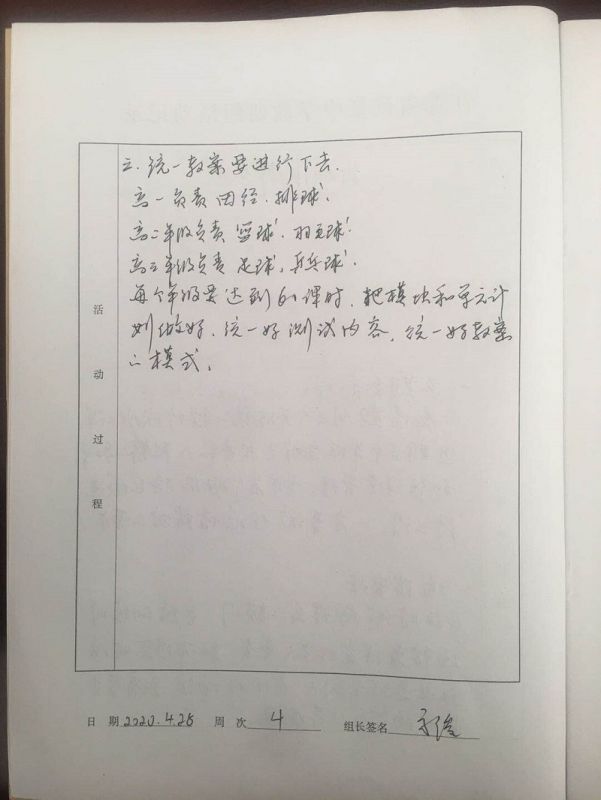 三.统一教案要进行下去.
高一负责田径.排球.
高二年级负责篮球.羽毛球.
高三年级负责足球,乒乓球.
每个年级要达到61课时,把模块和单元计
划做好.统一好测试内容,统一好教案
的模式.
活
动
过
程
日 期 2020.4.28 周 次 4 组长签名